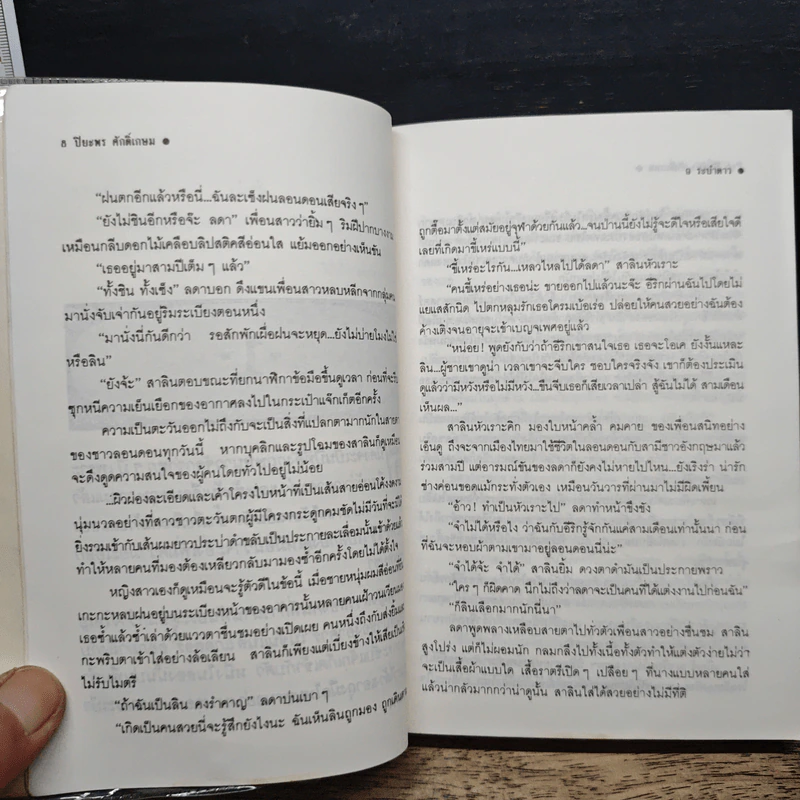 8 ปิยะพร ศักดิ์เกษม ●
“ฝนตกอีกแล้วหรือนี่...ฉันละเซ็งฝนลอนดอนเสียจริงๆ”
“ยังไม่ชินอีกหรือจ๊ะ ลดา” เพื่อนสาวว่ายิ้มๆ ริมฝีปากบางงาม
เหมือนกลีบดอกไม้เคลือบลิปสติคสีอ่อนใส แย้มออกอย่างเห็นขัน
“เธออยู่มาสามปีเต็มๆ แล้ว”
“ทั้งชิน ทั้งเซ็ง” ลดาบอก ดึงแขนเพื่อนสาวหลบหลีกจากกลุ่มคน
มานั่งจับเจ่ากันอยู่ริมระเบียงตอนหนึ่ง
“มานั่งนี่กันดีกว่า รอสักพักเผื่อฝนจะหยุด...ยังไม่บ่ายโมงไม่ใช่
หรือลิน”
“ยังจ้ะ” สาลินตอบขณะที่ยกนาฬิกาข้อมือขึ้นดูเวลา ก่อนที่จะรีบ
ซุกหนีความเย็นเยือกของอากาศลงไปในกระเป๋าแจ๊กเก็ตอีกครั้ง
ความเป็นตะวันออกไม่ถึงกับจะเป็นสิ่งที่แปลกตามากนักในสายตา
ของชาวลอนดอนทุกวันนี้ หากบุคลิกและรูปโฉมของสาลินก็ดูเหมือน
จะดึงดูดความสนใจของผู้คนโดยทั่วไปอยู่ไม่น้อย
...ผิวผ่องละเอียดและเค้าโครงใบหน้าที่เป็นเส้นสายอ่อนโค้งงดงาม
นุ่มนวลอย่างที่สาวชาวตะวันตกผู้มีโครงกระดูกคมชัดไม่มีวันที่จะมีได้
ยิ่งรวมเข้ากับเส้นผมยาวประบ่าดำขลับเป็นประกายละเลื่อมนั้นเข้าด้วยแล้ว
ทำให้หลายคนที่มองต้องเหลียวกลับมามองซ้ำอีกครั้งโดยไม่ได้ตั้งใจ
หญิงสาวเองก็ดูเหมือนจะรู้ตัวดีในข้อนี้ เมื่อชายหนุ่มผมสีอ่อนที่
เกะกะหลบฝนอยู่บนระเบียงหน้าของอาคารนั้นหลายคนเฝ้าวนเวียนมอง
เธอซ้ำแล้วซ้ำเล่าด้วยแววตาชื่นชมอย่างเปิดเผย คนหนึ่งถึงกับส่งยิ้มและ
กะพริบตาเข้าใส่อย่างล้อเลียน สาลินก็เพียงแต่เบี่ยงข้างให้เสียเป็นเชิง
ไม่รับไมตรี
“ถ้าฉันเป็นลิน คงรำคาญ” ลดาบ่นเบาๆ
“เกิดเป็นคนสวยนี่จะรู้สึกยังไงนะ ฉันเห็นลินถูกมอง ถูกเดินตาม
9 ระบำดาว ●
ถูกตื๊อมาตั้งแต่สมัยอยู่จุฬาด้วยกันแล้ว...จนป่านนี้ยังไม่รู้จะดีใจหรือเสียใจดี
เลยที่เกิดมาขี้เหร่แบบนี้”
“ขี้เหร่อะไรกัน...เหลวไหลไปได้ลดา” สาลินหัวเราะ
“คนขี้เหร่อย่างเธอน่ะ ขายออกไปแล้วนะจ๊ะ อีริกผ่านฉันไปโดยไม่
แยแสสักนิด ไปตกหลุมรักเธอโครมเบ้อเร่อ ปล่อยให้คนสวยอย่างฉันต้อง
ค้างเติ่งจนอายุจะเข้าเบญจเพศอยู่แล้ว
“หน่อย! พูดยังกับว่าถ้าอีริกเขาสนใจเธอ เธอจะโอเค ยังงั้นแหละ
ลิน...ผู้ชายเขาดูน่า เวลาเขาจะจีบใคร ชอบใครจริงจัง เขาก็ต้องประเมิน
ดูแล้วว่ามีหวังหรือไม่มีหวัง...ขืนจีบเธอก็เสียเวลาเปล่า สู้ฉันไม่ได้ สามเดือน
เห็นผล...”
สาลินหัวเราะคิก มองใบหน้าคล้ำ คมคาย ของเพื่อนสนิทอย่าง
เอ็นดู ถึงจะจากเมืองไทยมาใช้ชีวิตในลอนดอนกับสามีชาวอังกฤษมาแล้ว
ร่วมสามปี แต่อารมณ์ขันของลดาก็ยังคงไม่หายไปไหน...ยังเริงร่า น่ารัก
ช่างค่อนขอดแม้กระทั่งตัวเอง เหมือนวันวารที่ผ่านมาไม่มีผิดเพี้ยน
“อ้าว! ทำเป็นหัวเราะไป” ลดาทำหน้าขึงขัง
“จำไม่ได้หรือไง ว่าฉันกับอีริกรู้จักกันแค่สามเดือนเท่านั้นนา ก่อน
ที่ฉันจะหอบผ้าตามเขามาอยู่ลอนดอนนี่น่ะ”
“จำได้จ้ะ จำได้” สาลินยิ้ม ดวงตาดำมันเป็นประกายพราว
“ใครๆ ก็ผิดคาด นึกไม่ถึงว่าลดาจะเป็นคนที่ได้แต่งงานไปก่อนฉัน”
“ก็ลินเลือกมากนักนี่นา”
ลดาพูดพลางเหลือบสายตาไปทั่วตัวเพื่อนสาวอย่างชื่นชม สาลิน
สูงโปร่ง แต่ก็ไม่ผอมนัก กลมกลึงไปทั้งเนื้อทั้งตัวทำให้แต่งตัวง่ายไม่ว่า
จะเป็นเสื้อผ้าแบบใด เสื้อราตรีเปิดๆ เปลือยๆ ที่นางแบบหลายคนใส่
แล้วน่ากลัวมากกว่าน่าดูนั้น สาลินใส่ได้สวยอย่างไม่มีที่ติ